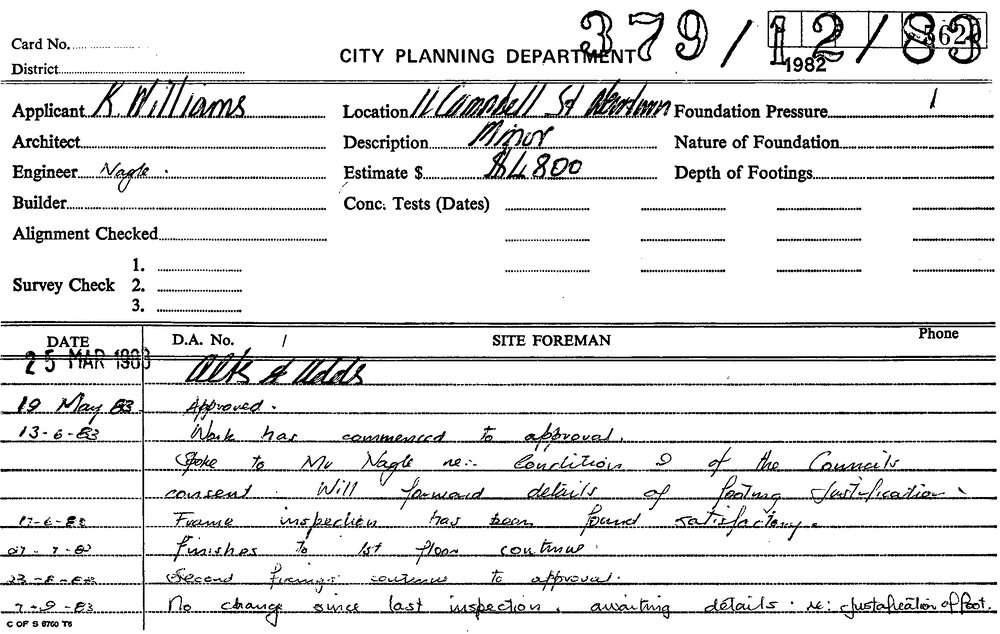 379/12/83
5620
Card No.
CITY PLANNING DEPARTMENT
1982
District
Applicant K. Williams
Location 11 Campbell St
Foundation Pressure 1
Architect
Description Minor
Nature of Foundation
Engineer Nagle.
Estimate $ $4800
Depth of Footings
Builder
Conc. Tests (Dates)
Alignment Checked
1.
Survey Check 2.
3.
DATE D.A. No. / SITE FOREMAN Phone
25 MAR 1983 Alts & Adds
19 May 83 Approved.
13-6-83 Work has commenced to approval.
Spoke to Mr Nagle re:- Condition 2 of the Councils
consent. Will forward details of footing justification.
17-6-83 Frame inspection has been found satisfactory.
7-83 Finishes to 1st floor continue.
8-83 Second fixings continue to approval.
7-9-83 No change since last inspection, awaiting details re: justafication of foot.
C OF S 8760 T6